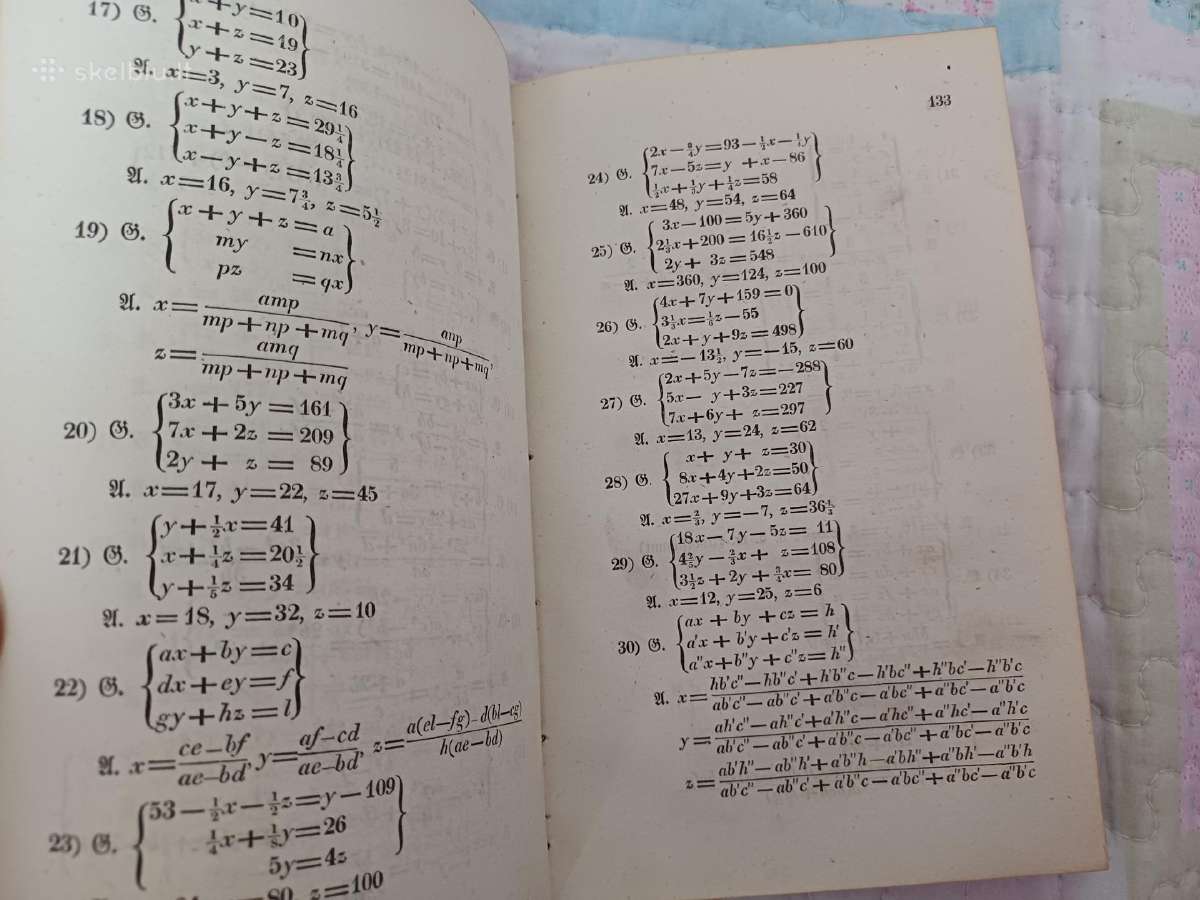 17) G. x+y=10
x+z=19
y+z=23
A. x=3, y=7, z=16
18) G. x+y+z=29¼
x+y−z=18¼
x−y+z=13¾
A. x=16, y=7¾, z=5½
19) G. x+y+z=a
my =nx
pz =qx
A. x=amp/(mp+np+mq), y=anp/(mp+np+mq),
z=amq/(mp+np+mq)
20) G. 3x+5y=161
7x+2z=209
2y+ z= 89
A. x=17, y=22, z=45
21) G. y+½x=41
x+¼z=20½
y+⅕z=34
A. x=18, y=32, z=10
22) G. ax+by=c
dx+ey=f
gy+hz=l
A. x=(ce−bf)/(ae−bd), y=(af−cd)/(ae−bd), z=(a(el−fg)−d(bl−cg))/(h(ae−bd))
23) G. 53−½x−½z=y−109
¼x+⅛y=26
5y=4z
80, z=100
133
24) G. 2x− y=93−½x− y
7x−5z=y +x−86
x+⅓y+¼z=58
A. x=48, y=54, z=64
25) G. 3x−100=5y+360
2⅓x+200=16½z−610
2y+ 3z=548
A. x=360, y=124, z=100
26) G. 4x+7y+159=0
3⅓x=⅙z−55
2x+y+9z=498
A. x=−13½, y=−15, z=60
27) G. 2x+5y−7z=−288
5x− y+3z=227
7x+6y+ z=297
A. x=13, y=24, z=62
28) G. x+ y+ z=30
8x+4y+2z=50
27x+9y+3z=64
A. x=⅔, y=−7, z=36⅓
29) G. 18x−7y−5z= 11
4⅖y−⅔x+ z=108
3½z+2y+¾x= 80
A. x=12, y=25, z=6
30) G. ax+by+cz=h
a'x+b'y+c'z=h'
a''x+b''y+c''z=h''
A. x=(hb'c''−hb''c'+h'b''c−h'bc''+h''bc'−h''b'c)/(ab'c''−ab''c'+a'b''c−a'bc''+a''bc'−a''b'c)
y=(ah'c''−ah''c'+a'h''c−a'hc''+a''hc'−a''h'c)/(ab'c''−ab''c'+a'b''c−a'bc''+a''bc'−a''b'c)
z=(ab'h''−ab''h'+a'b''h−a'bh''+a''bh'−a''b'h)/(ab'c''−ab''c'+a'b''c−a'bc''+a''bc'−a''b'c)
skelbiu.lt